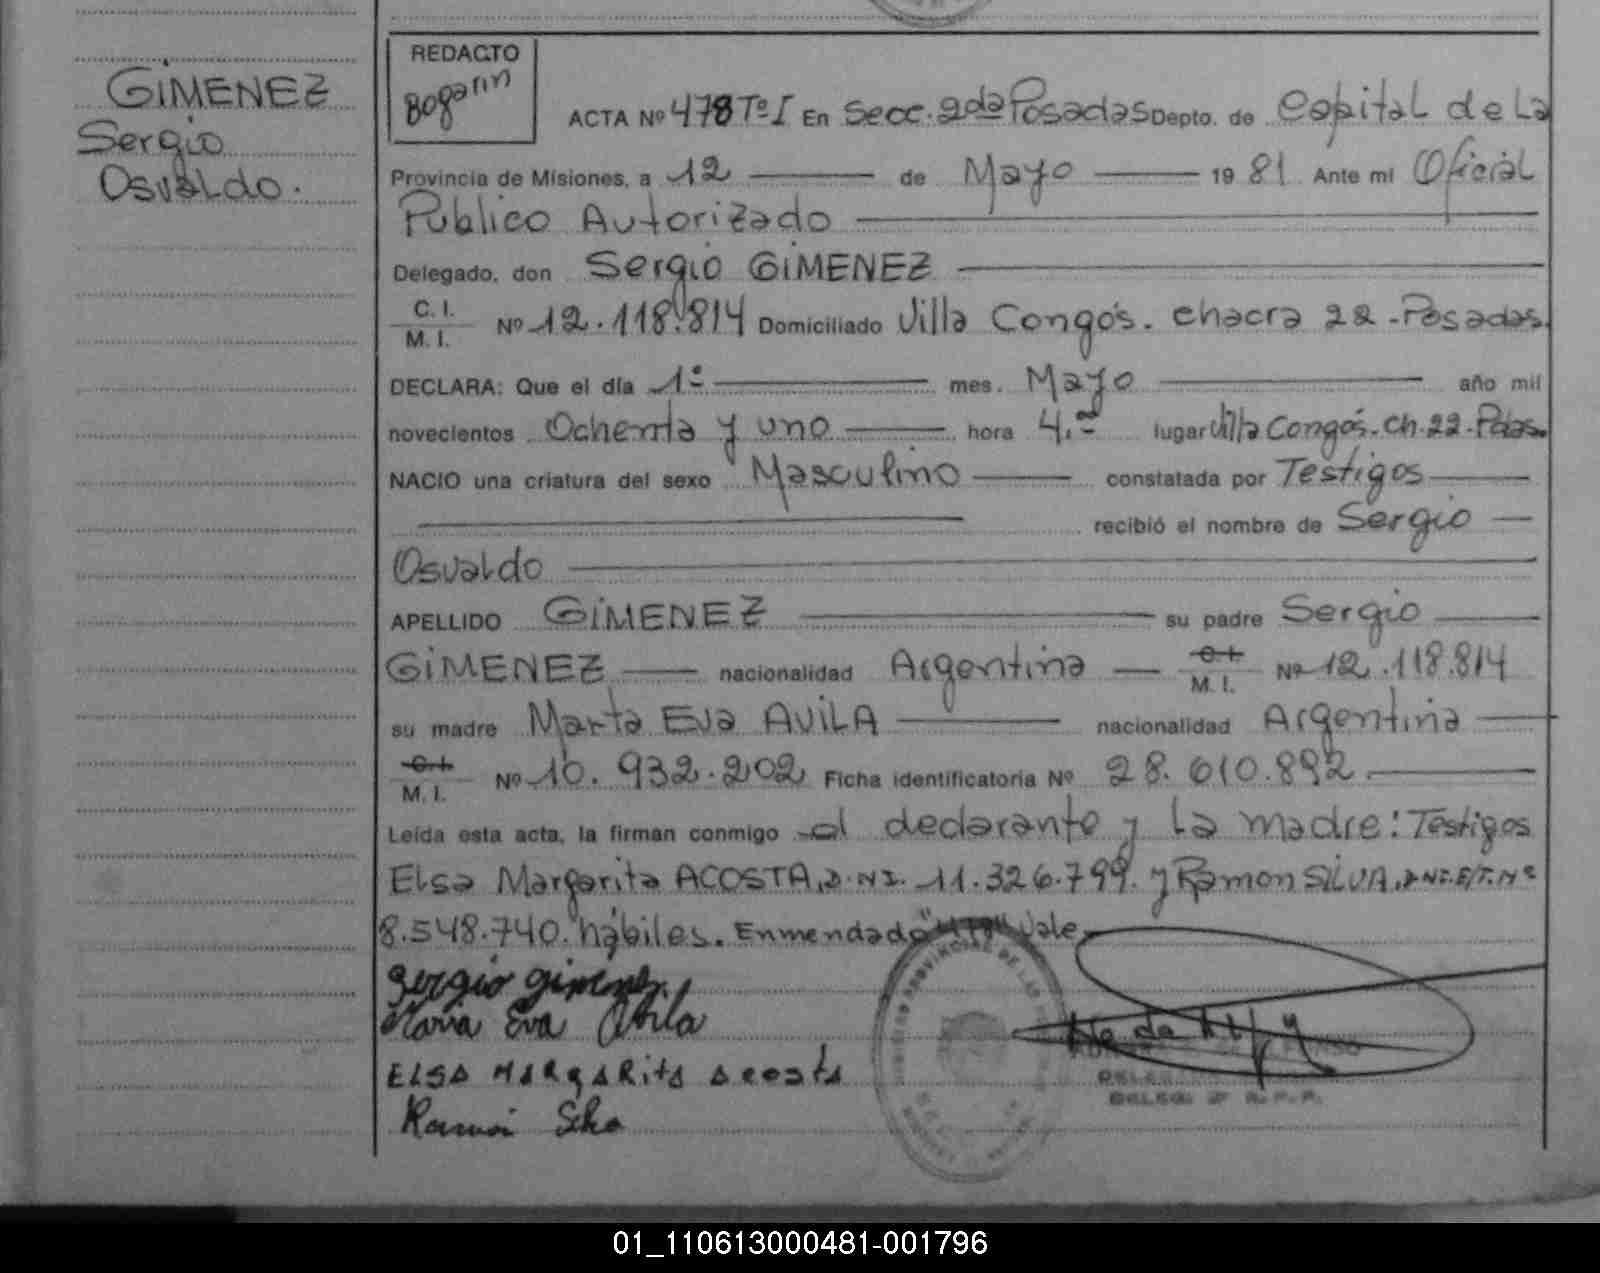 GIMENEZ
Sergio
Osvaldo.
REDACTO
Bogarin
ACTA Nº 478 Tº I En Secc. 2da Posadas Depto. de Capital de La
Provincia de Misiones, a 12 de Mayo 19 81 Ante mi Oficial
Publico Autorizado
Delegado, don Sergio GIMENEZ
C. I.
M. I. Nº 12.118.814 Domiciliado Villa Congós. Chacra 22 - Posadas.
DECLARA: Que el día 1º mes. Mayo año mil
novecientos Ochenta y uno hora 4.- lugar Villa Congós. Ch. 22. Pdas.
NACIO una criatura del sexo Masculino constatada por Testigos
recibió el nombre de Sergio
Osvaldo
APELLIDO GIMENEZ su padre Sergio
GIMENEZ nacionalidad Argentina C. I.
M. I. Nº 12.118.814
su madre Marta Eva AVILA nacionalidad Argentina
C. I.
M. I. Nº 10.932.202 Ficha identificatoria Nº 28.610.892.
Leída esta acta, la firman conmigo el declarante y la madre: Testigos
Elsa Margarita ACOSTA, D.NI. 11.326.799. y Ramon SILVA, DNI.E/T.Nº
8.548.740. hábiles. Enmendado "478" Vale.
Sergio Gimenez.
Maria Eva Avila
ELSA MARGARITA Acosta
Ramón Silva
01_110613000481-001796